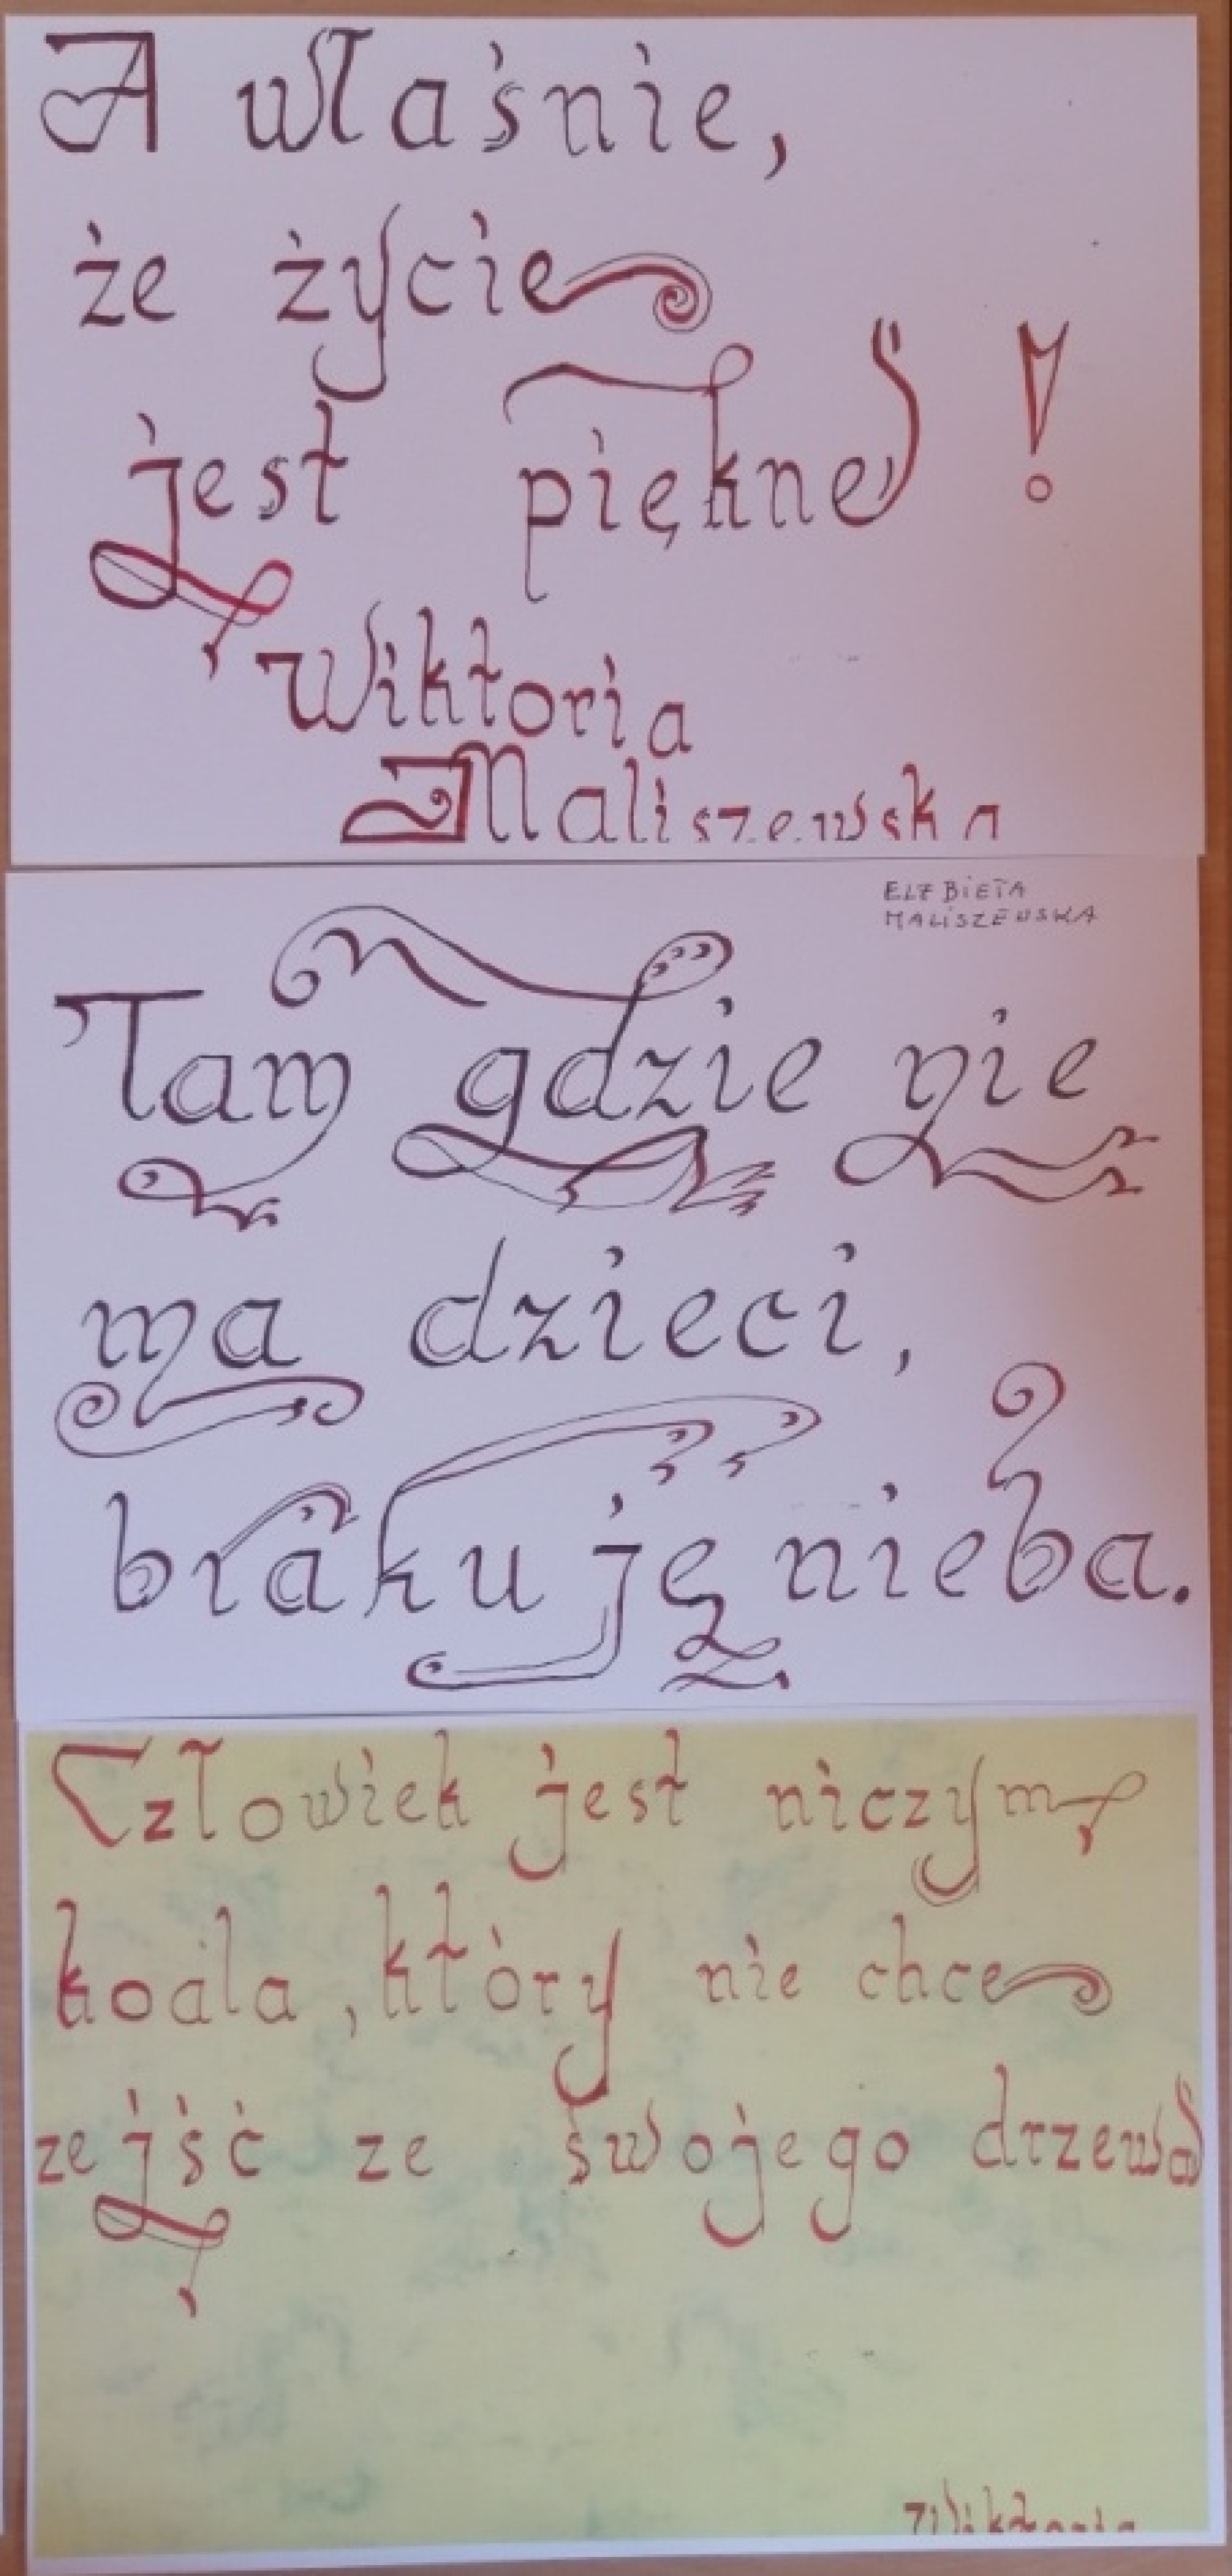 A właśnie,
że życie
jest piękne!
Wiktoria
Maliszewska
ELŻBIETA
MALISZEWSKA
Tam gdzie nie
ma dzieci,
brakuję nieba.
Człowiek jest niczym
koala, który nie chce
zejść ze swojego drzewa
Wiktoria